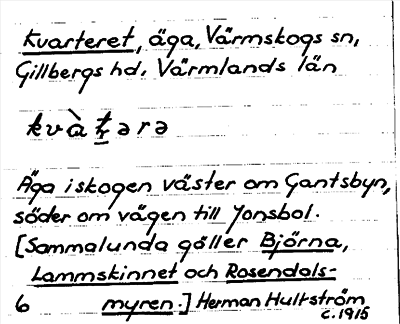 Kvarteret, äga, Värmskogs sn,
Gillbergs hd, Värmlands län
kvàt̠ərə
Äga i skogen väster om Gantsbyn,
söder om vägen till Jonsbol.
[Sammalunda gäller Björna,
Lammskinnet och Rosendals-
6 myren.] Herman Hultström
c. 1915